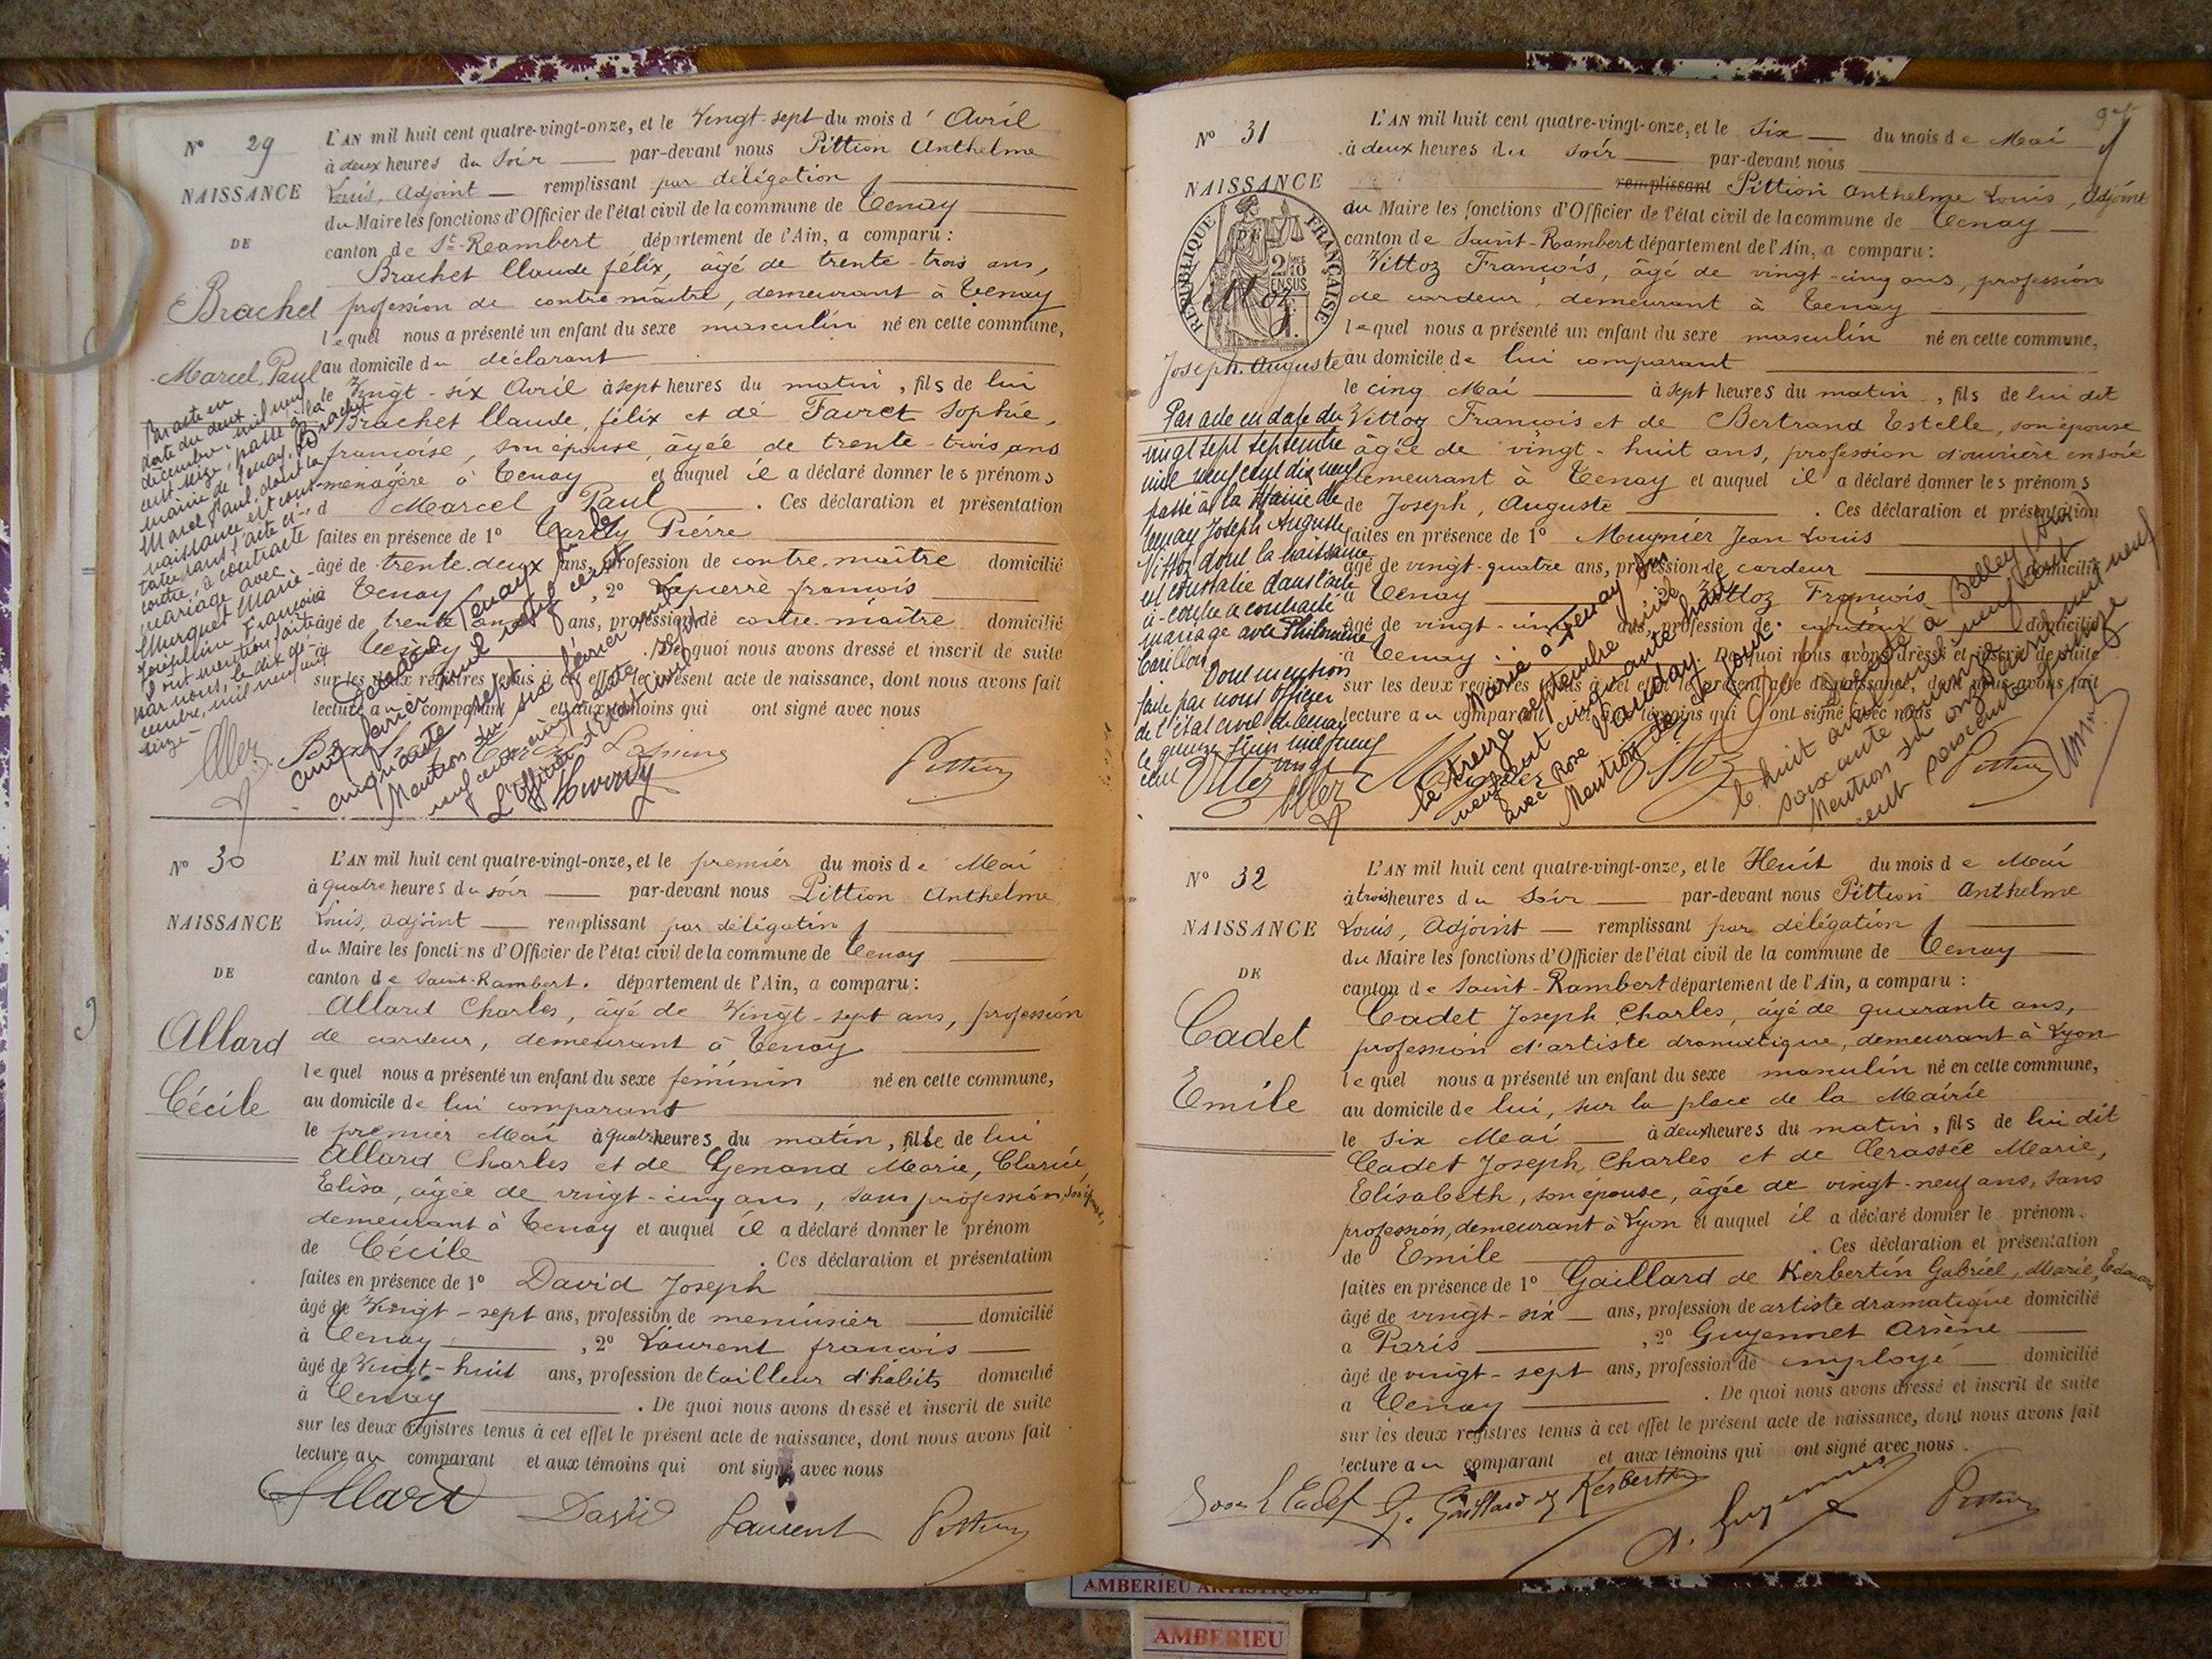 N° 29
NAISSANCE
DE
Brachet
Marcel, Paul
L'AN mil huit cent quatre-vingt-onze, et le Vingt-sept du mois d' Avril
à deux heures du soir par-devant nous Pittion Anthelme
Louis, Adjoint remplissant par délégation
du Maire les fonctions d'Officier de l'état civil de la commune de Tenay
canton de St-Rambert département de l'Ain, a comparu :
Brachet Claude félix, âgé de trente-trois ans,
profession de contre maître, demeurant à Tenay
lequel nous a présenté un enfant du sexe masculin né en cette commune,
au domicile du déclarant
le Vingt-six Avril à sept heures du matin, fils de lui
Brachet Claude, félix et de Favret Sophie,
françoise, son épouse, âgée de trente-trois ans
ménagère à Tenay et auquel il a déclaré donner les prénoms
d Marcel Paul. Ces déclaration et présentation
faites en présence de 1° Pierre
âgé de trente-deux ans, profession de contre-maître domicilié
à Tenay, 2° Lapierre françois
âgé de trente ans, profession de contre-maître domicilié
à Tenay. De quoi nous avons dressé et inscrit de suite
sur les deux registres tenus à cet effet le présent acte de naissance, dont nous avons fait
lecture au comparant et aux témoins qui ont signé avec nous
Par acte en
date du deux
décembre mil neuf
cent seize, passé à la
mairie de Tenay, Brachet
Marcel Paul, dont la
naissance est cons-
tatée dans l'acte ci-
contre, a contracté
mariage avec
Murguet Marie
Joséphine Françoise
dont mention faite
par nous, le dix dé-
cembre, mil neuf cent
seize
Décédé à Tenay le
cinq février mil neuf cent
cinquante sept
Mention du six février mil
neuf cent cinquante sept
L'Officier d'Etat Civil
Brachet Lapierre Pittion
N° 30
NAISSANCE
DE
Allard
Cécile
L'AN mil huit cent quatre-vingt-onze, et le premier du mois de Mai
à quatre heures du soir par-devant nous Pittion Anthelme
Louis, adjoint remplissant par délégation
du Maire les fonctions d'Officier de l'état civil de la commune de Tenay
canton de Saint-Rambert. département de l'Ain, a comparu :
Allard Charles, âgé de Vingt-sept ans, profession
de cardeur, demeurant à Tenay
lequel nous a présenté un enfant du sexe féminin né en cette commune,
au domicile de lui comparant
le premier Mai à quatre heures du matin, fille de lui
Allard Charles et de Genand Marie, Clarice
Elisa, âgée de vingt-cinq ans, sans profession, son épouse,
demeurant à Tenay et auquel il a déclaré donner le prénom
de Cécile. Ces déclaration et présentation
faites en présence de 1° David Joseph
âgé de Vingt-sept ans, profession de menuisier domicilié
à Tenay, 2° Laurent françois
âgé de Vingt-huit ans, profession de tailleur d'habits domicilié
à Tenay. De quoi nous avons dressé et inscrit de suite
sur les deux registres tenus à cet effet le présent acte de naissance, dont nous avons fait
lecture au comparant et aux témoins qui ont signé avec nous
Allard David Laurent Pittion
N° 31
NAISSANCE
DE
RÉPUBLIQUE FRANÇAISE
2/10 EN SUS
Vittoz
Joseph. Auguste
L'AN mil huit cent quatre-vingt-onze, et le Six du mois de Mai
à deux heures du soir par-devant nous
remplissant Pittion Anthelme Louis, Adjoint
du Maire les fonctions d'Officier de l'état civil de la commune de Tenay
canton de Saint-Rambert département de l'Ain, a comparu :
Vittoz François, âgé de vingt-cinq ans, profession
de cardeur, demeurant à Tenay
lequel nous a présenté un enfant du sexe masculin né en cette commune,
au domicile de lui comparant
le cinq Mai à sept heures du matin, fils de lui dit
Vittoz François et de Bertrand Estelle, son épouse
âgée de vingt-huit ans, profession d'ouvrière en soie
demeurant à Tenay et auquel il a déclaré donner les prénoms
de Joseph, Auguste. Ces déclaration et présentation
faites en présence de 1° Meugnier Jean Louis
âgé de vingt-quatre ans, profession de cardeur domicilié
à Tenay Vittoz François
âgé de vingt- ans, profession de cardeur domicilié
à Tenay. De quoi nous avons dressé et inscrit de suite
sur les deux registres tenus à cet effet le présent acte de naissance, dont nous avons fait
lecture au comparant témoins qui ont signé avec nous
Par acte en date du
vingt sept septembre
mil neuf cent dix neuf
passé à la Mairie de
Tenay Joseph Auguste
Vittoz dont la naissance
est constatée dans l'acte
ci-contre a contracté
mariage avec Philomène
Carillon
Dont mention
faite par nous officier
de l'état civil de Tenay
le quinze Juin mil neuf
cent vingt
Marié à Tenay
le treize septembre mil
neuf cent cinquante
avec Rose Vauday
Mention de ce jour
Décédé à Belley (Ain)
le huit mil neuf cent
soixante
Mention du onze mil neuf
cent soixante
Vittoz Pittion
N° 32
NAISSANCE
DE
Cadet
Emile
L'AN mil huit cent quatre-vingt-onze, et le Huit du mois de Mai
à trois heures du Soir par-devant nous Pittion Anthelme
Louis, Adjoint remplissant par délégation
du Maire les fonctions d'Officier de l'état civil de la commune de Tenay
canton de Saint-Rambert département de l'Ain, a comparu :
Cadet Joseph Charles, âgé de quarante ans,
profession d'artiste dramatique, demeurant à Lyon
lequel nous a présenté un enfant du sexe masculin né en cette commune,
au domicile de lui, sur la place de la Mairie
le six Mai à deux heures du matin, fils de lui dit
Cadet Joseph, Charles et de Cerassée Marie,
Elisabeth, son épouse, âgée de vingt-neuf ans, sans
profession, demeurant à Lyon et auquel il a déclaré donner le prénom
de Emile. Ces déclaration et présentation
faites en présence de 1° Gaillard de Kerbertin Gabriel, Marie, Edouard
âgé de vingt-six ans, profession de artiste dramatique domicilié
à Paris, 2° Guyennet Arsène
âgé de vingt-sept ans, profession de employé domicilié
à Tenay. De quoi nous avons dressé et inscrit de suite
sur les deux registres tenus à cet effet le présent acte de naissance, dont nous avons fait
lecture au comparant et aux témoins qui ont signé avec nous.
Cadet G. Gaillard de Kerbertin A. Guyennet Pittion
AMBERIEU ARTISTIQUE
AMBERIEU